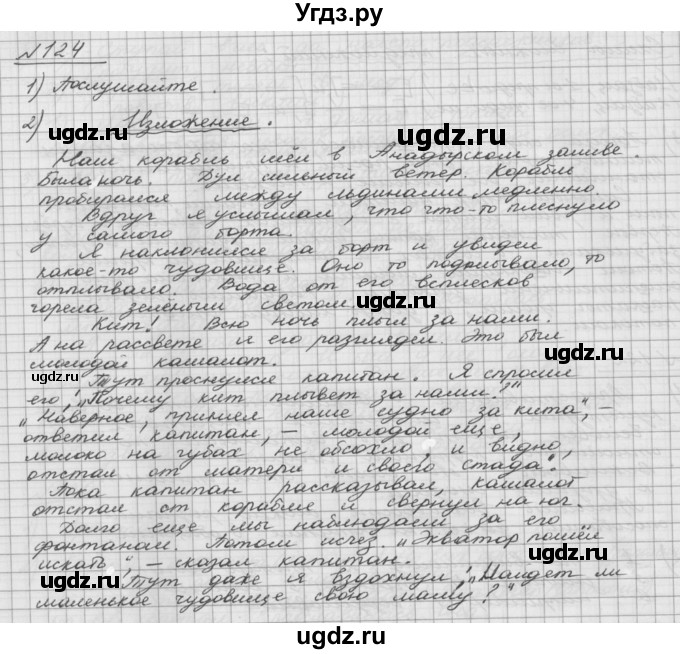 Угдз.ру
№124
1) Послушайте.
2) Изложение.
Наш корабль шёл в Анадырском заливе.
Была ночь. Дул сильный ветер. Корабль
пробирался между льдинами медленно.
Вдруг я услышал, что что-то плеснуло
у самого борта.
Я наклонился за борт и увидел
какое-то чудовище. Оно то подплывало, то
отплывало. Вода от его всплесков
горела зелёным светом.
Кит! Всю ночь плыл за нами.
А на рассвете я его разглядел. Это был
молодой кашалот.
Тут проснулся капитан. Я спросил
его: „Почему кит плывет за нами?"
„Наверное, принял наше судно за кита", –
ответил капитан, – молодой еще,
молоко на губах не обсохло, и видно,
отстал от матери и своего стада".
Пока капитан рассказывал, кашалот
отстал от корабля и свернул на юг.
Долго еще мы наблюдали за его
фонтаном. Потом исчез. „Экватор пошёл
искать", – сказал капитан.
Тут даже я вздохнул: „Найдет ли
маленькое чудовище свою маму?"
ugdz.ru
ugdz.ru
ugdz.ru
ugdz.ru
ugdz.ru
ugdz.ru
ugdz.ru
ugdz.ru
ugdz.ru
ugdz.ru
ugdz.ru